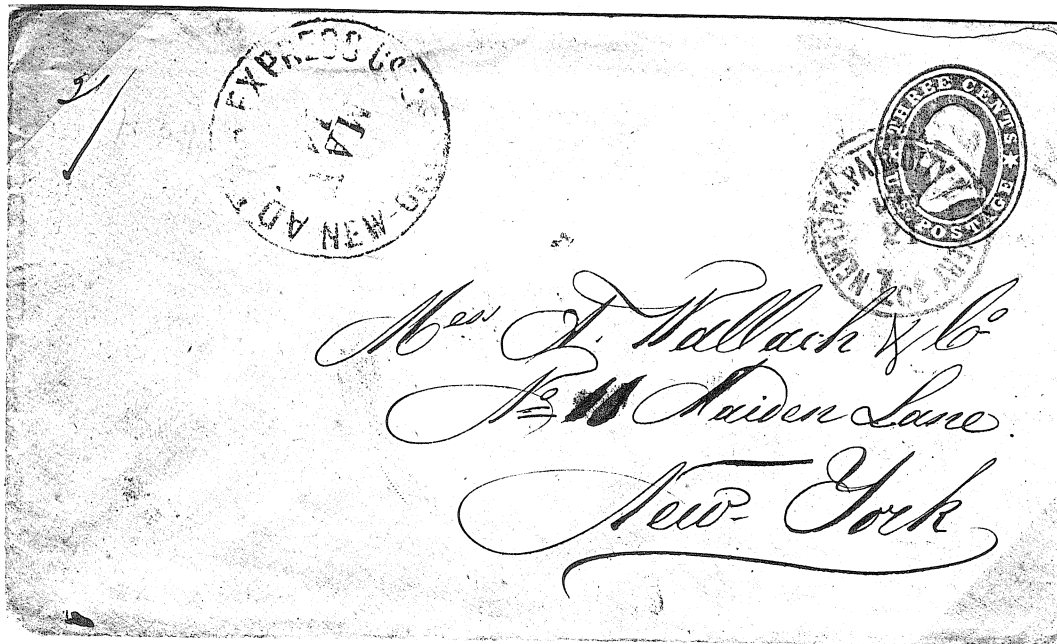 EXPRESS Co.
MA
AD NEW-O
THREE CENTS
U.S. POSTAGE
NEW YORK. PAI
21
Mess A. Wallach & Co
No 11 Maiden Lane.
New-York